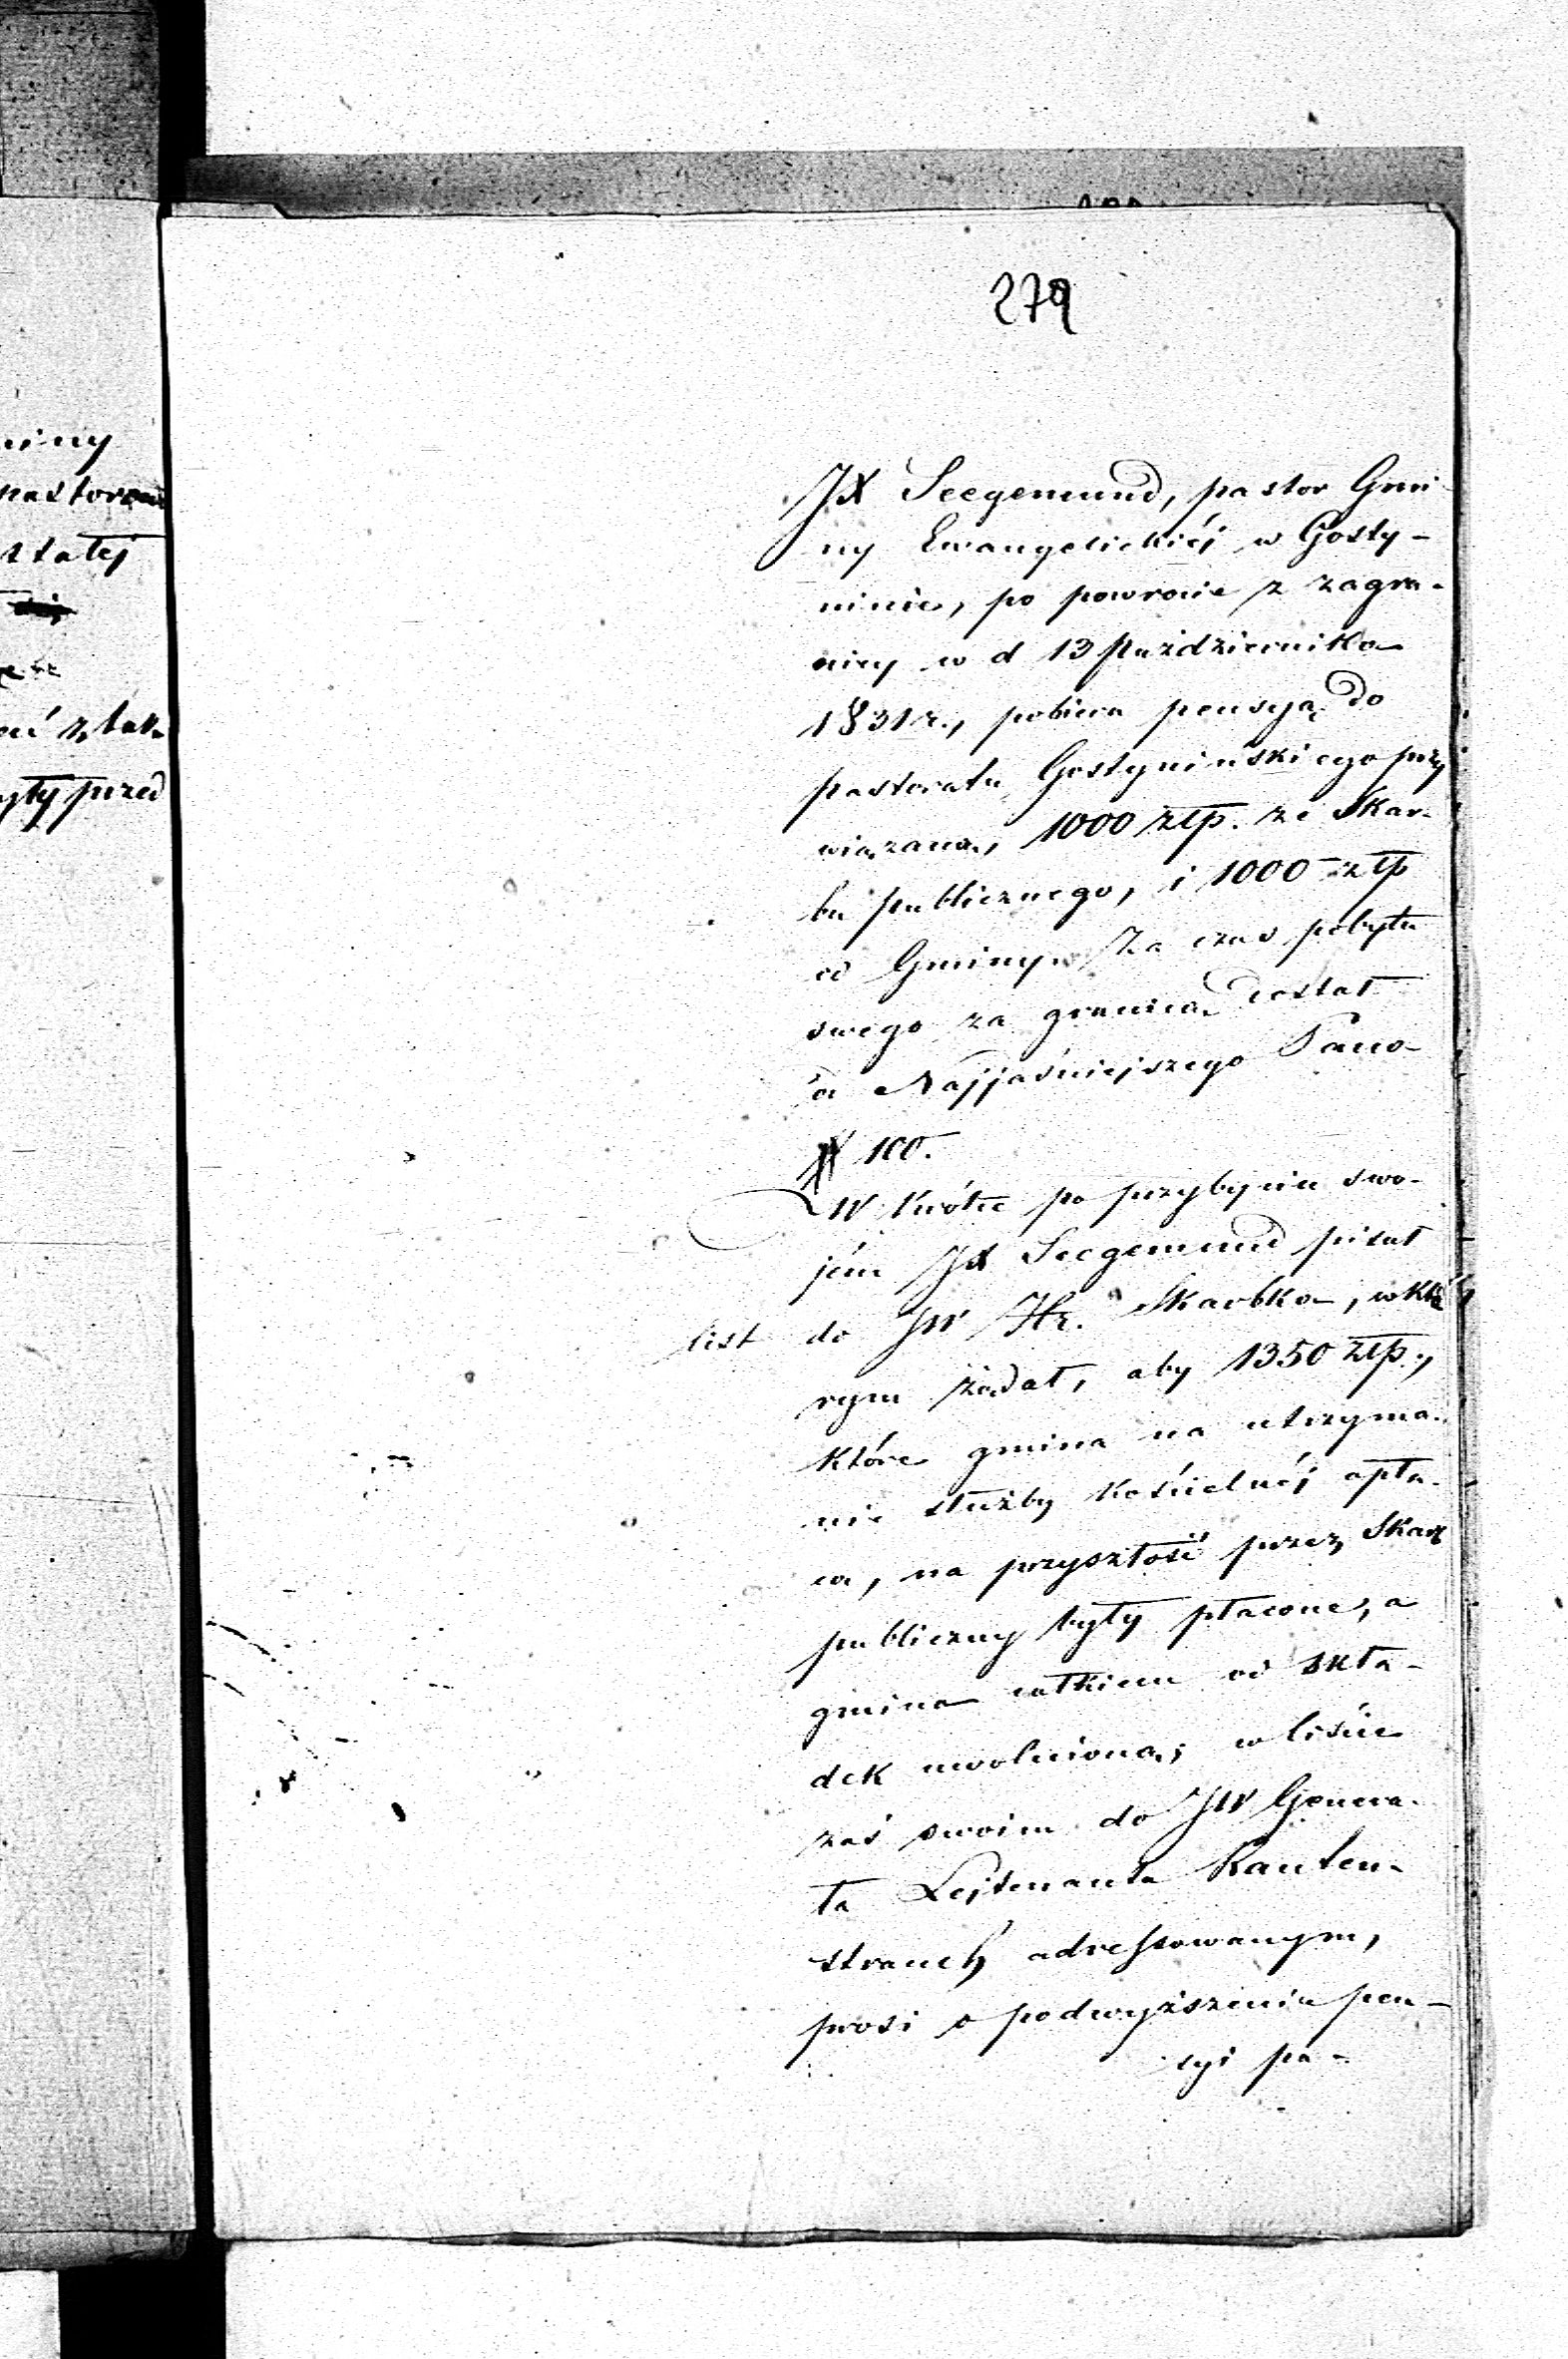 279
JX Seegemund, pastor Gmi
ny Ewangelickiéj w Gosty-
ninie, po powrocie z zagra-
nicy w d 13 Października
1831 r., pobiera pensyą do
pastoratu Gostynińskiego przy
wiązaną, 1000 złp. ze Skar-
bu publicznego, i 1000 złp
od Gminy. Za czas pobytu
swego za granicą dostał
od Najjaśniejszego Pana
# 100.
W krótce po przybyciu swo-
jém JX Seegemund pisał
list do JW Hr. Skarbka, w któ
rym żądał, aby 1350 złp.,
które gmina na utrzyma-
nie służby kościelnéj opła-
ca, na przyszłość przez Skarb
publiczny były płacone, a
gmina całkiem od skła-
dek uwolnioną; w liście
zaś swoim do JW Genera-
ła Lejtenanta Rauten-
strauch adressowanym,
prosi o podwyższenie pen-
syi pa-
iny
pastorowi
stałej
ytyprzed